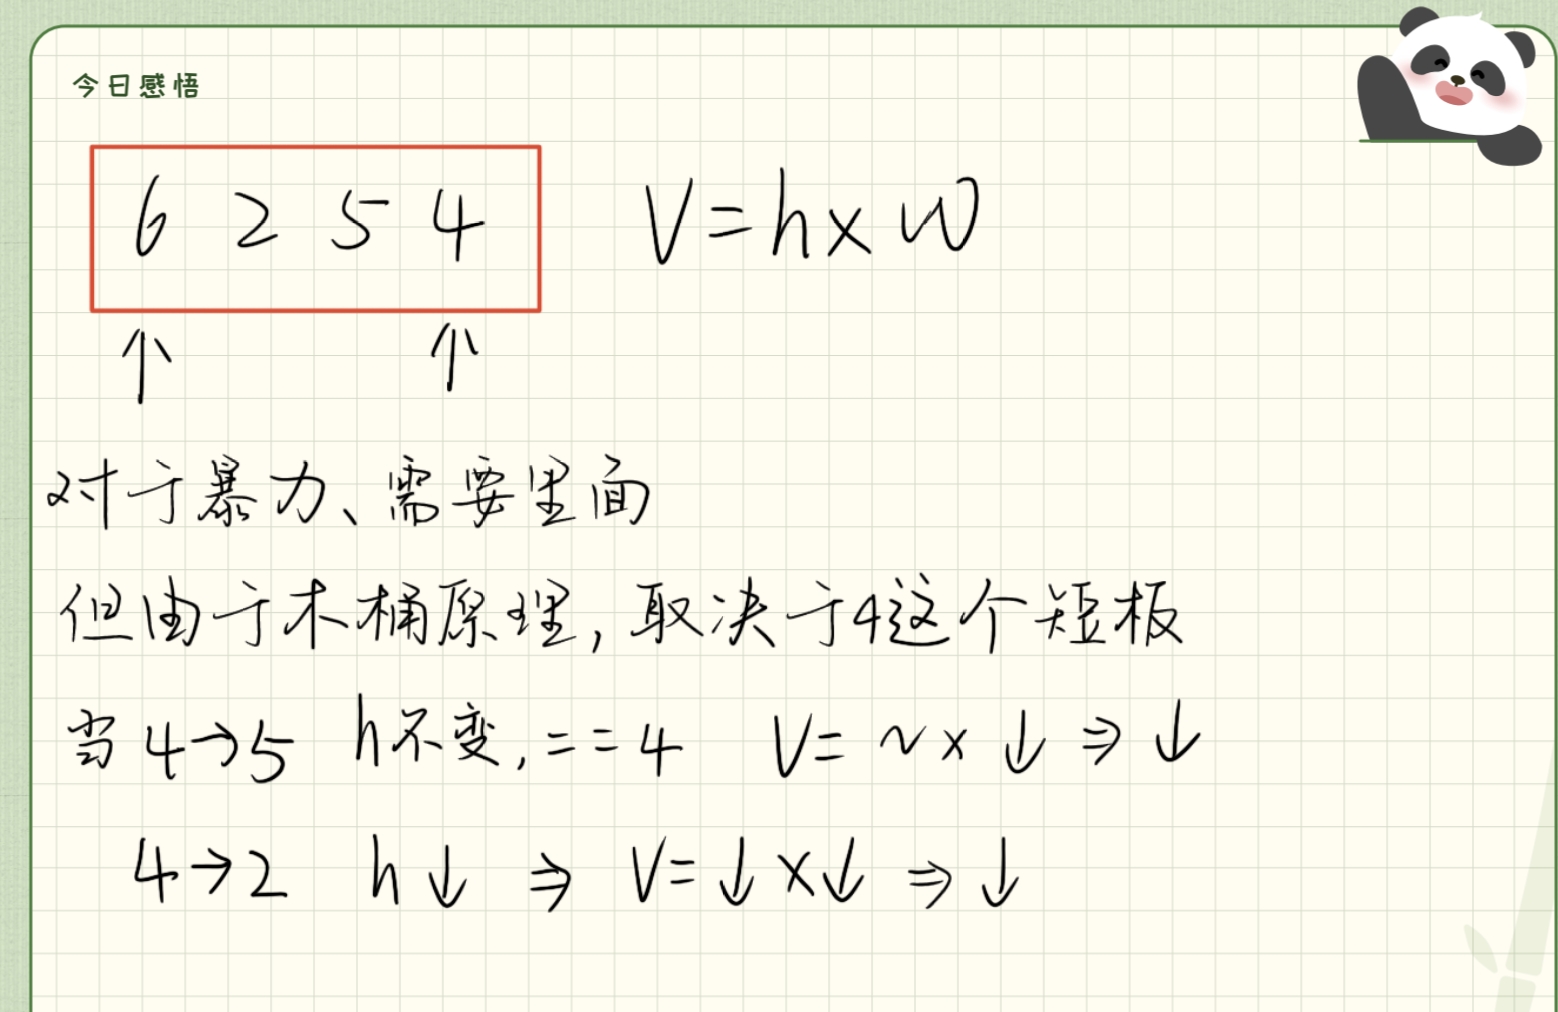 今日感悟
6 2 5 4 V=h×w
↑ ↑
对于暴力、需要里面
但由于木桶原理,取决于4这个短板
当4→5 h不变,==4 V=~×↓⇒↓
4→2 h↓⇒V=↓×↓⇒↓